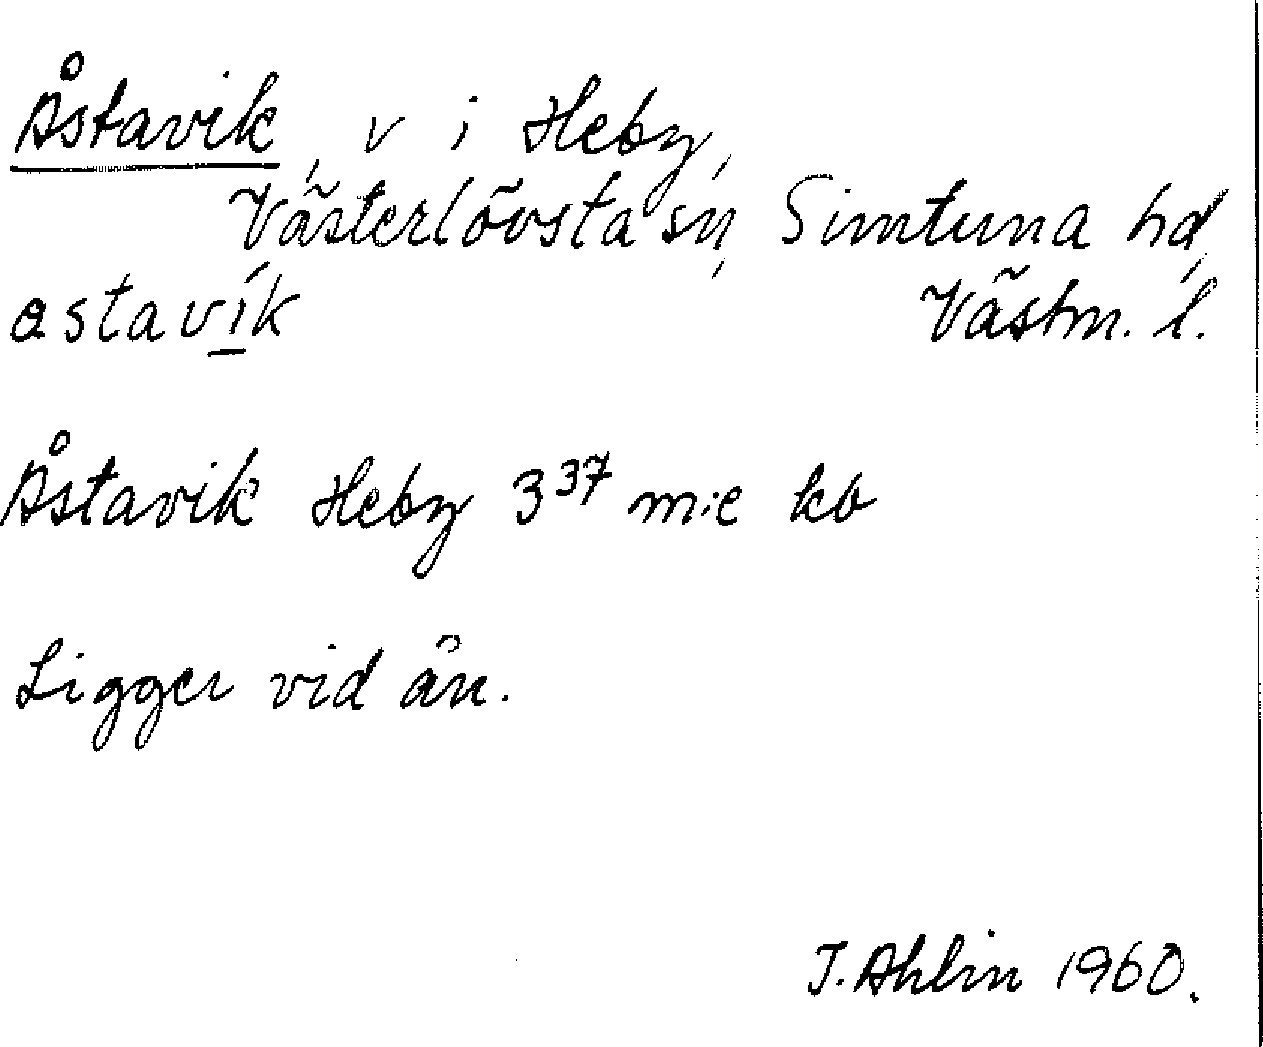 Åstavik, v i Heby,
Västerlövsta sn, Simtuna hd,
Västm. l.
astavík
Åstavik Heby 3³⁷ m:e kb
Ligger vid ån.
J. Ahlin 1960.